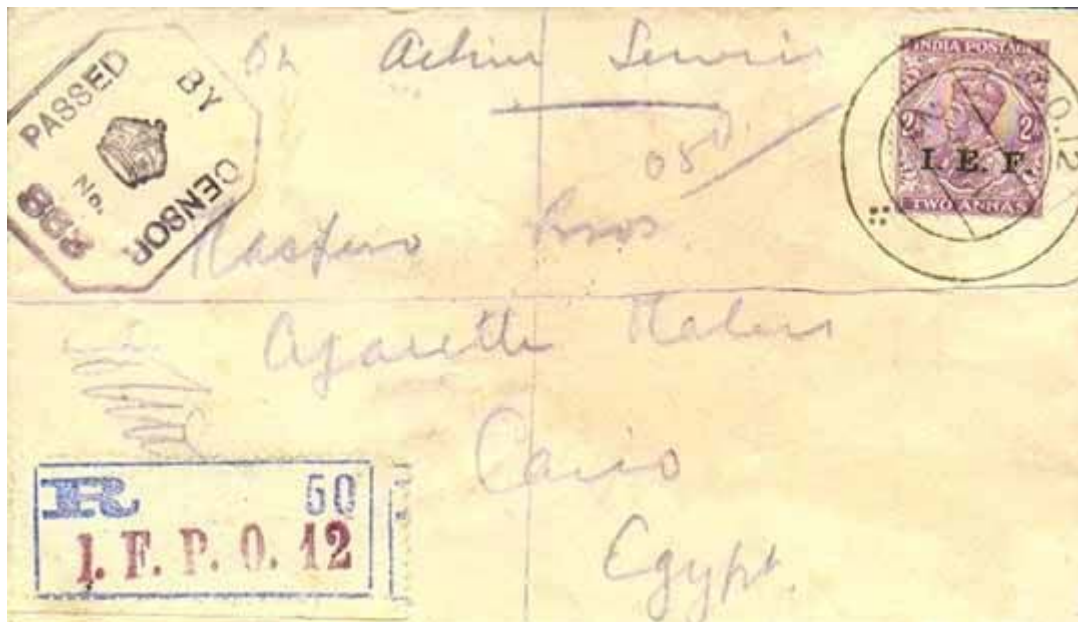 PASSED BY
CENSOR
No.
On Active Service
INDIA POSTAGE
2 2
I. E. F.
TWO ANNAS
O.12
Bros.
Cigarette Makers
Cairo
Egypt.
R 50
I. F. P. O. 12